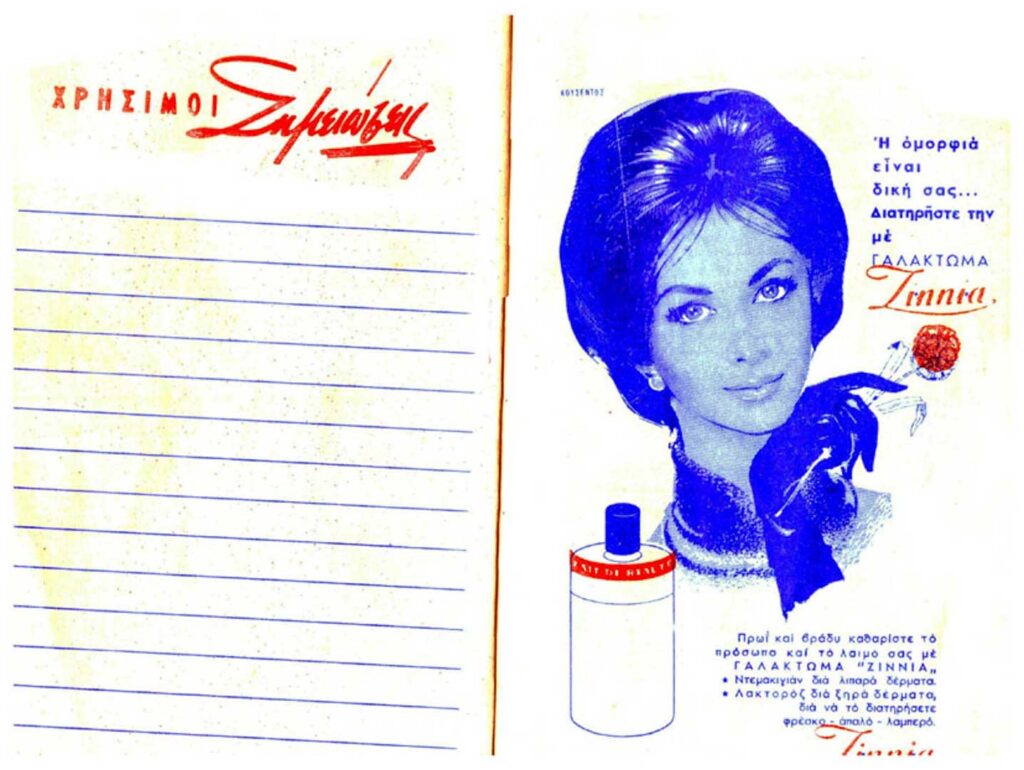 ΧΡΗΣΙΜΟΙ Σημειώσεις
ΚΟΥΣΕΝΤΟΣ
Ἡ ὀμορφιά
εἶναι
δική σας...
Διατηρῆστε την
μέ
ΓΑΛΑΚΤΩΜΑ
Zinnia,
LAIT DE BEAUTE
Πρωΐ καί βράδυ καθαρίστε τό
πρόσωπο καί τό λαιμο σας μέ
ΓΑΛΑΚΤΩΜΑ "ΖΙΝΝΙΑ„
★ Ντεμακιγιάν διά λιπαρά δέρματα.
★ Λακτορόζ διά ξηρά δέρματα,
διά νά τό διατηρήσετε
φρέσκο - ἁπαλό - λαμπερό.
Zinnia